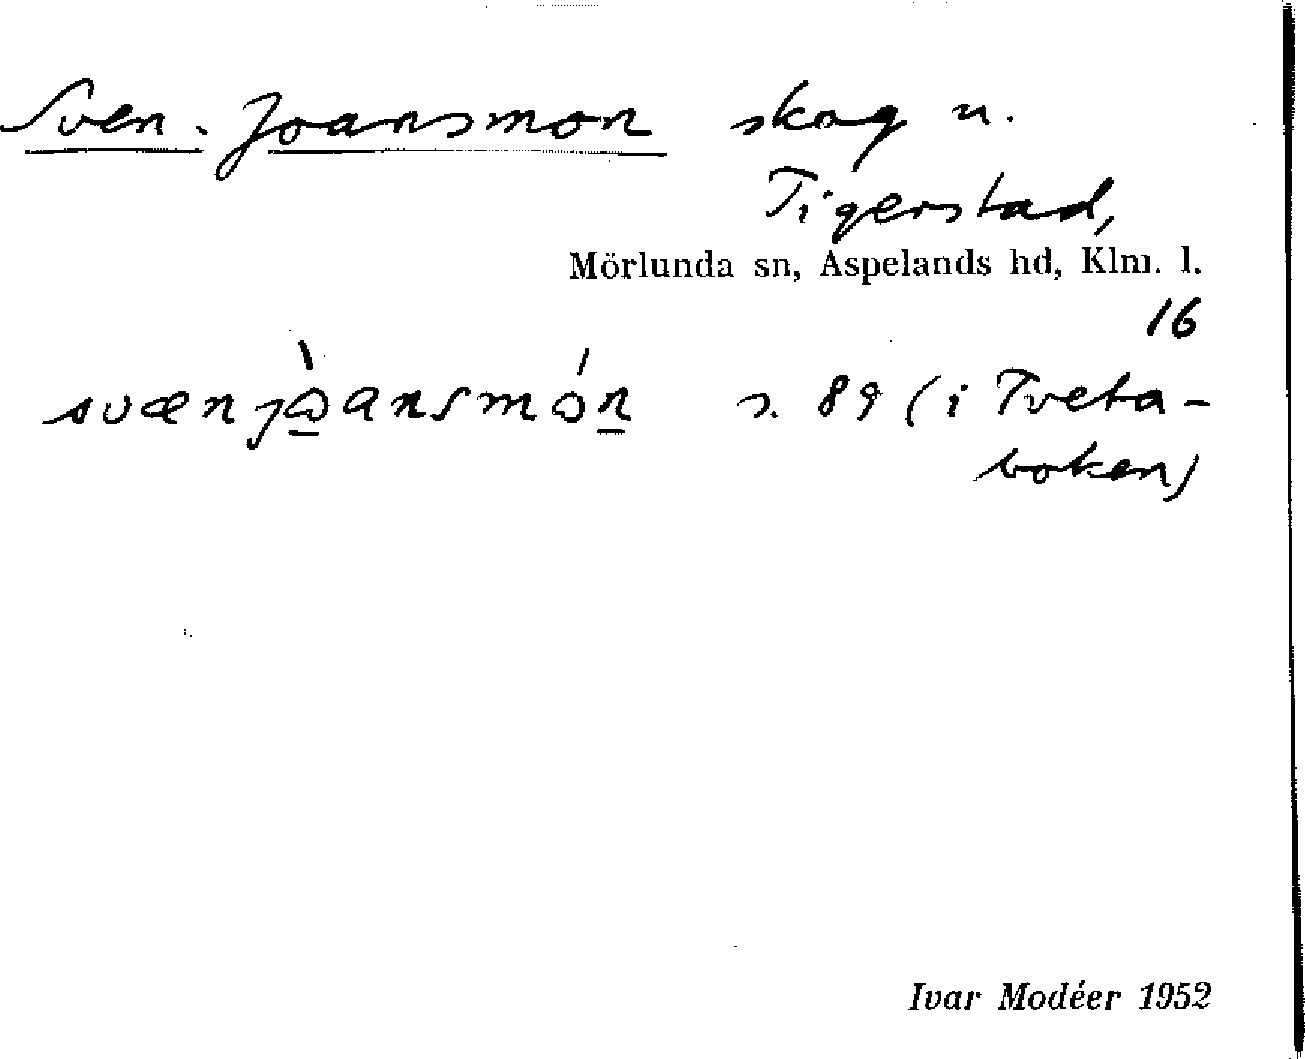 Sven-Joansmon skog u.
Tigerstad,
Mörlunda sn, Aspelands hd, Klm. l.
16
svænjòansmón s. 89 (i Tveta-
boken)
Ivar Modéer 1952